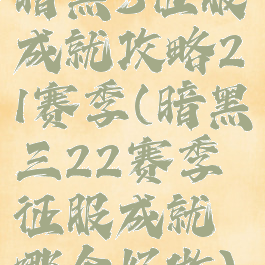 暗黑3征服
成就攻略2
1赛季(暗黑
三22赛季
征服成就
哪个好做)